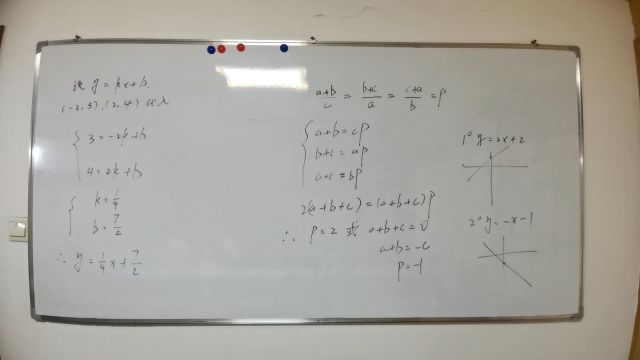 设 y = kx + b.
(-2,3).(2,4) 代入
3 = -2k + b
4 = 2k + b
k = 1/4
b = 7/2
∴ y = 1/4 x + 7/2
a+b/c = b+c/a = c+a/b = p
a+b = cp
b+c = ap
c+a = bp
2(a+b+c) = (a+b+c)p
∴ p = 2 或 a+b+c = 0
a+b = -c
p = -1
1° y = 2x + 2
2° y = -x - 1